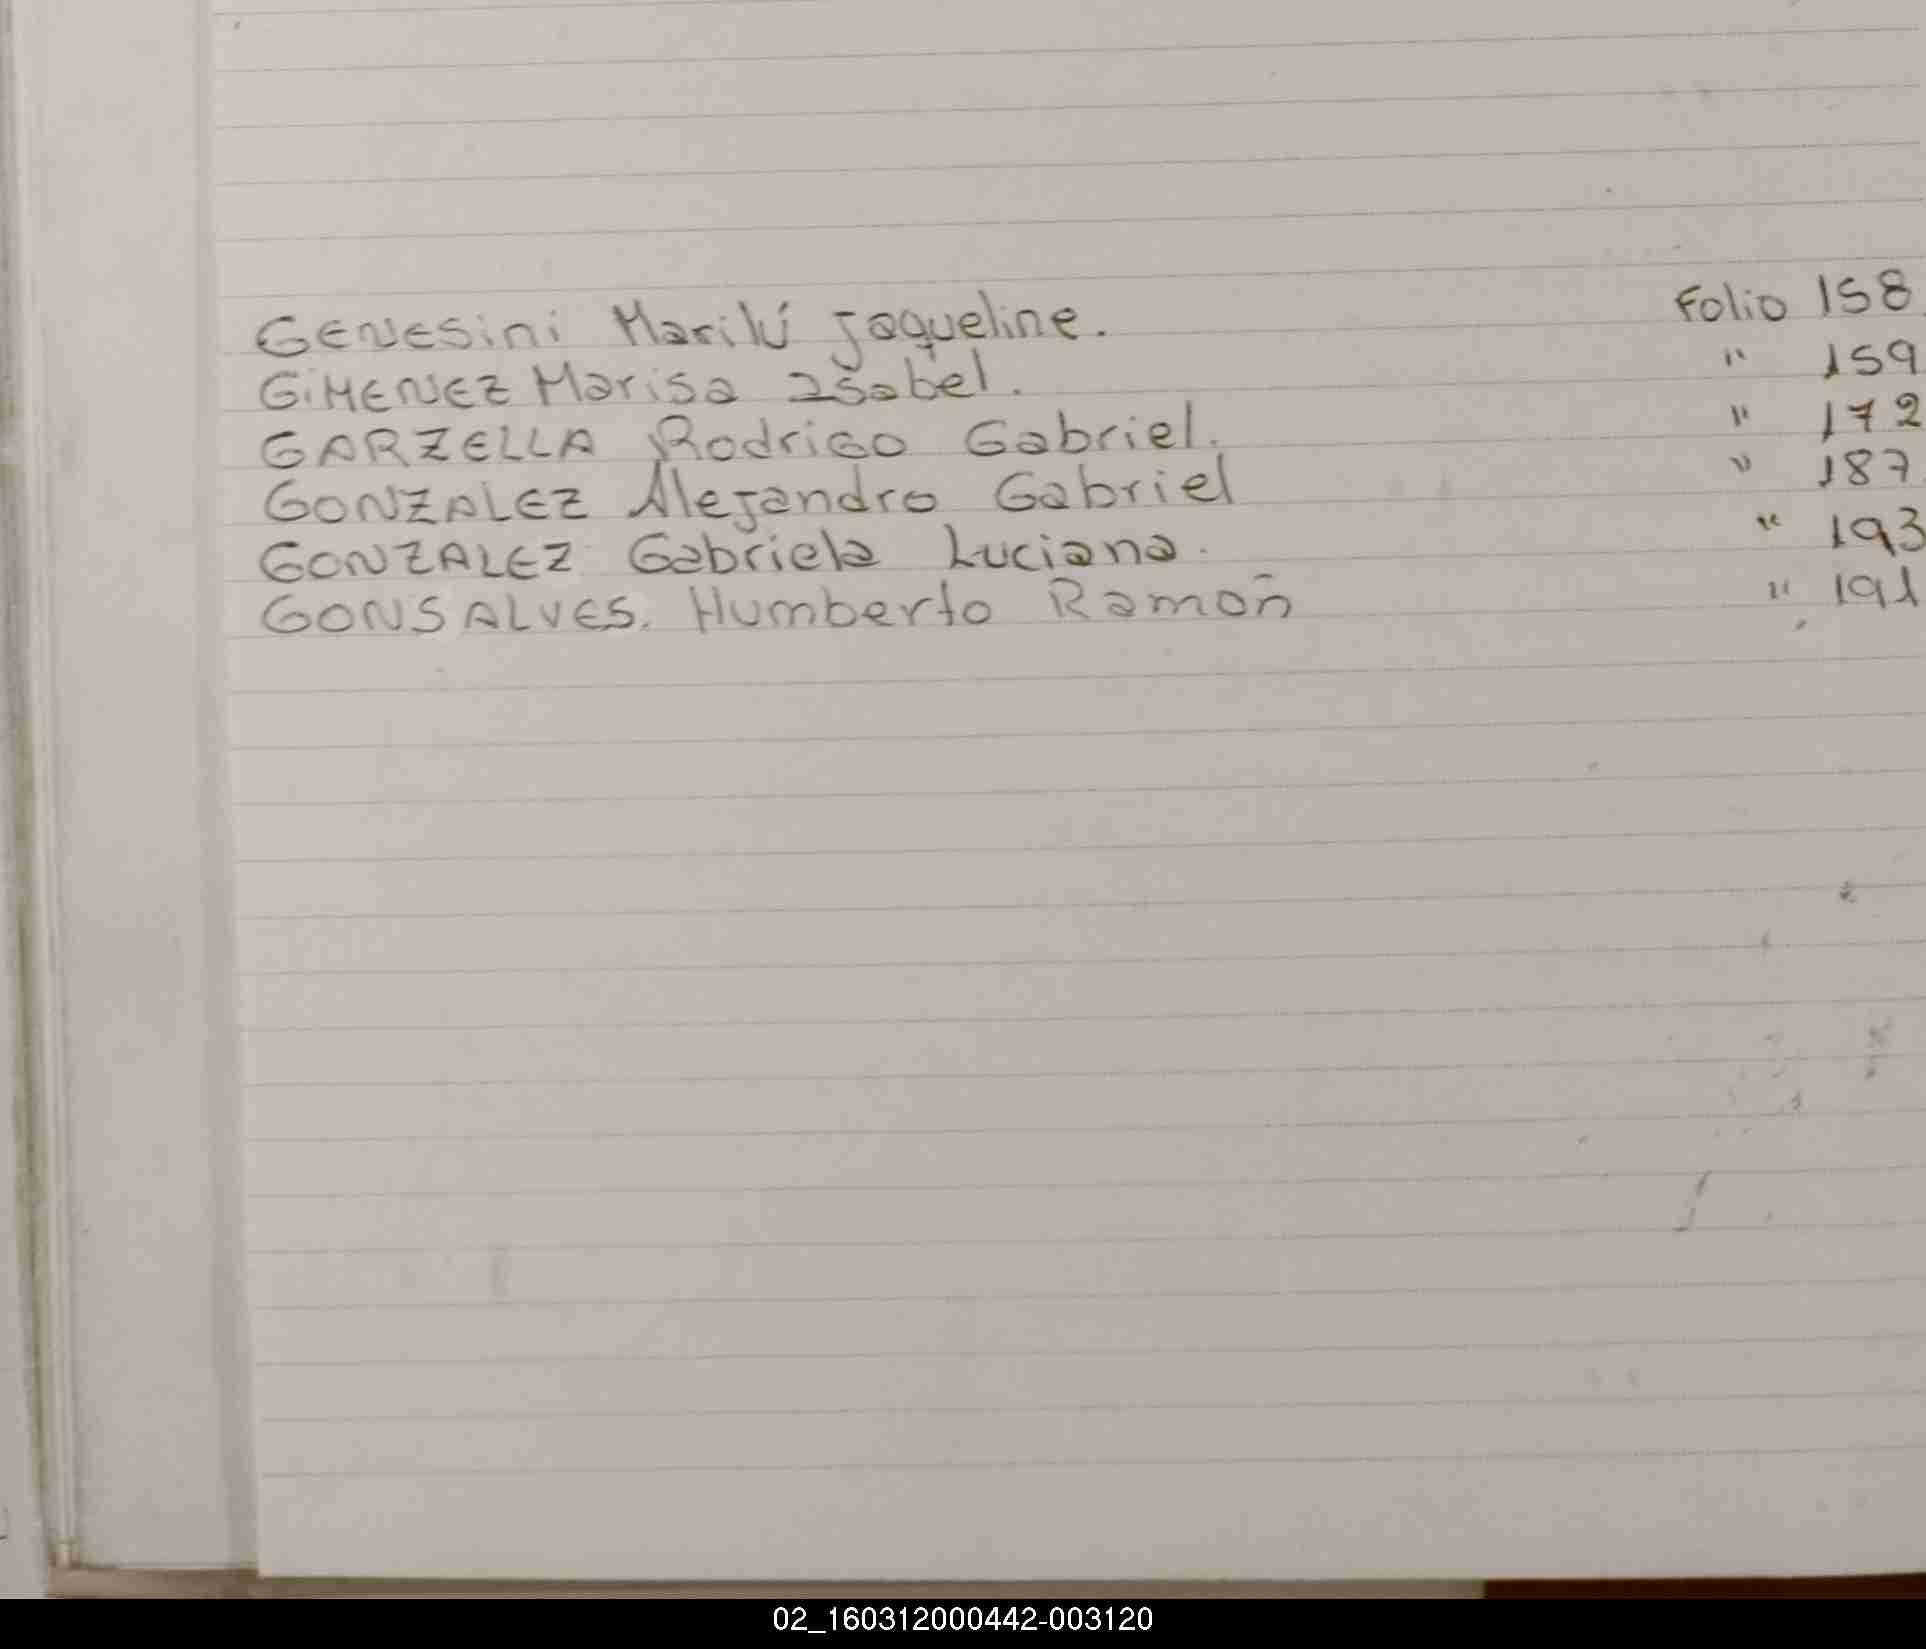 GENESini Marilú Jaqueline. Folio 158
GiMENEZ Marisa Isabel. " 159
GARZELLA Rodrigo Gabriel. " 172
GONZALEZ Alejandro Gabriel " 187
GONZALEZ Gabriela Luciana. " 193
GONSALVES. Humberto Ramoñ " 191
02_160312000442-003120